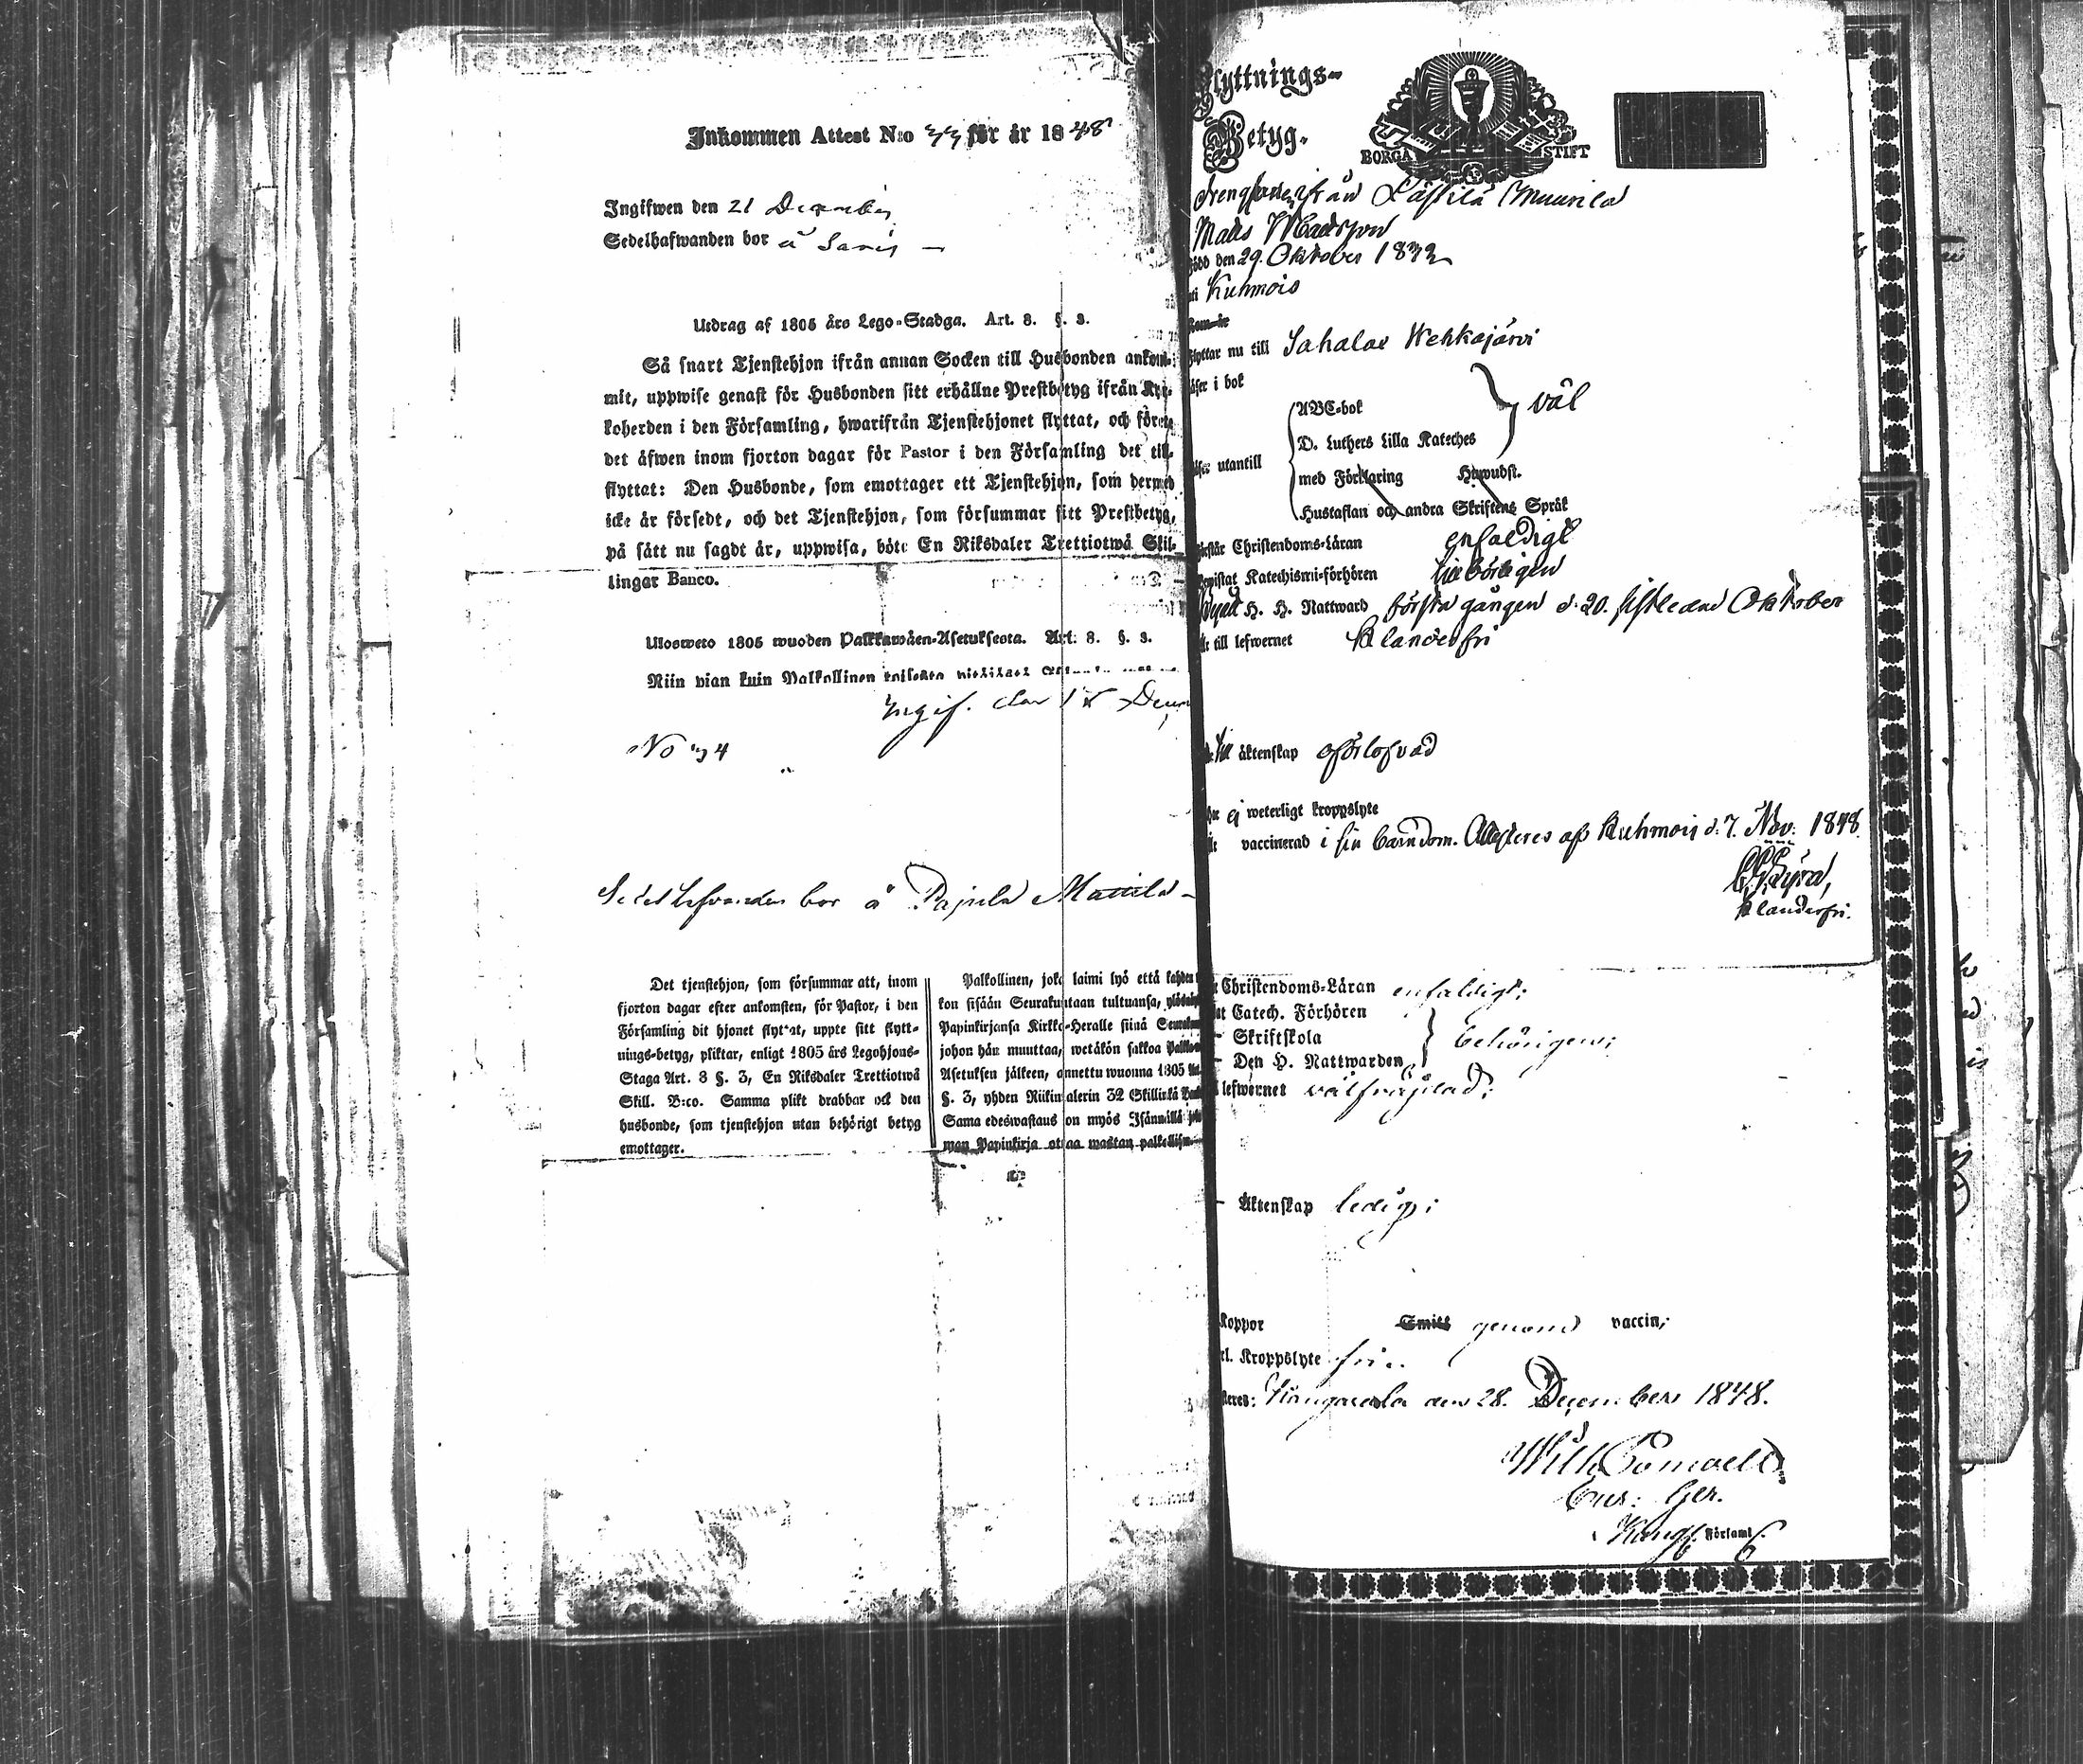 Inkommen Attest N:o 33 för år 1848
Ingifwen den 21 December
Sedelhafwanden bor å Saris
Utdrag af 1805 års Lego-Stadga. Art. 8. §. 3.
Så snart Tjenstehjon ifrån annan Socken till Husbonden ankom-
mit, uppwise genast för Husbonden sitt erhållne Prestbetyg ifrån Kyr-
koherden i den Församling, hwarifrån Tjenstehjonet flyttat, och förete
det äfwen inom fjorton dagar för Pastor i den Församling det till-
flyttat: Den Husbonde, som emottager ett Tjenstehjon, som dermed
icke är försedt, och det Tjenstehjon, som försummar sitt Prestbetyg,
på sätt nu sagdt är, uppwisa, böte En Riksdaler Trettiotwå Skil-
lingar Banco.
Ulosweto 1805 wuoden Palkkawäen-Asetuksesta. Art: 8. §. 3.
Niin pian kuin Palkollinen toisesta
Ingif. den
No 34
Sedelhafvanden bor å Pajula Mattila
Det tjenstehjon, som försummar att, inom
fjorton dagar efter ankomsten, för Pastor, i den
Församling dit hjonet flyttat, uppte sitt flytt-
nings-betyg, pliktar, enligt 1805 års Legohjons-
Staga Art. 8 §. 3, En Riksdaler Trettiotwå
Skill. B:co. Samma plikt drabbar ock den
husbonde, som tjenstehjon utan behörigt betyg
emottager.
Palkollinen, joka laimi lyö että kahden
kon sisään Seurakuntaan tultuansa,
Papinkirjansa Kirkko-Heralle siinä
johon hän muuttaa, wetäkön sakkoa
Asetuksen jälkeen, annettu wuonna 1805
§. 3, yhden Riikintalerin 32 Skillinkä
Sama edeswastaus on myös Isännällä
man Papinkirja ottaa wastan
Flyttnings-
Betyg.
BORGÅ STIFT
Drengsonen ifrån Lästilä Muurila
Matts Mattsson
född den 29. Oktober 1832
uti Kuhmois
flyttar nu till Sahalax Wehkajärvi
läser i bok
ABC-bok
väl
D. Luthers Lilla Kateches
läser utantill
med Förklaring Huwudst.
Hustaflan och andra Skriftens Språk
förstår Christendoms-Läran enfaldigt
Bewistat Katechismi-förhören behörigen
Begått H. H. Nattward första gången d. 20. sistledne Oktober
är till lefwernet klanderfri
till äktenskap oförlofvad
har ej weterligt kroppslyte
är vaccinerad i sin barndom. Attesteres af Kuhmois d. 7. Nov. 1848.
klanderfri.
Christendoms-Läran enfaldigt;
Catech. Förhören
Skriftskola behörigen;
Den H. Nattwarden
lefwernet välfrejdad;
Äktenskap ledig;
Koppor Smitt genom vaccin;
Kroppslyte fri.
Kangasala den 28. December 1848.
Församl